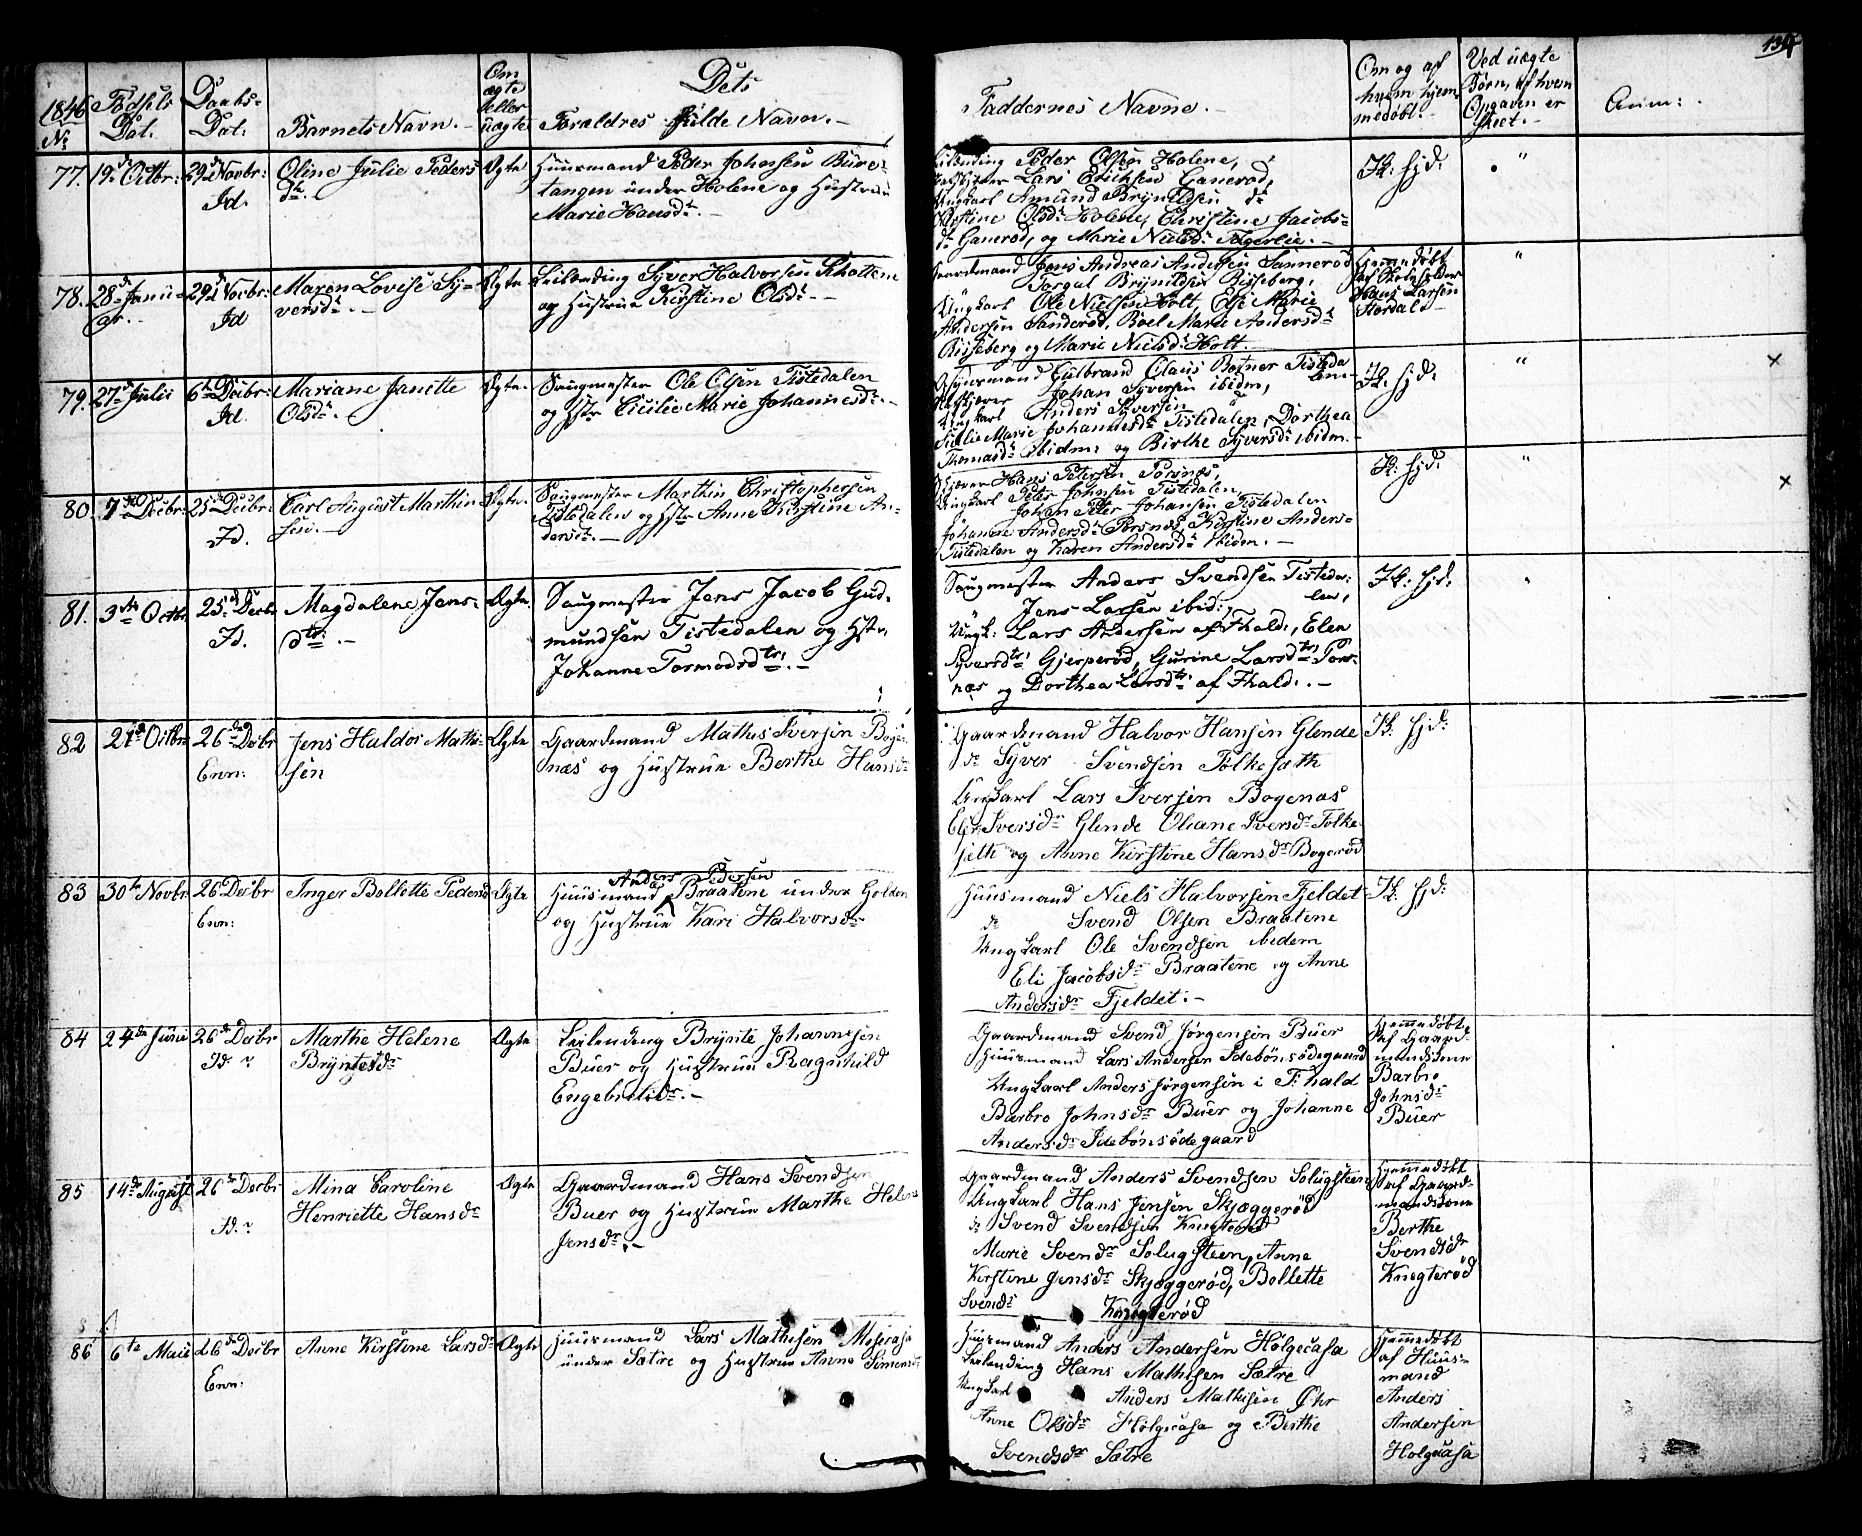 134
1846
No
Fødsels
Dat.
Daabs-
Dat:
Barnets Navn.
Om
ægte
eller
uægte
Dets
Forældres fulde Navn.
Faddernes Navne.
Om og af
hvem hjem
medøbt.
Ved uægte
Børn, af hvem
Opgaven er
skeet.
Anm:
77. 19de Octbr: 29de Novbr:
Id.
Oline Julie Peders
dtr.
Ægte
Huusmand Peder Johnsen
tangen under Holene og Hustrue
Marie Hansdtr.
Leilænding Peder Olsen Holene,
Lars Eriksen Ganerød,
Ungkarl Amund Brynildsen do
Olsdtr Holene, Christine Jacobs-
dtr Ganerød, og Marie Nielsdtr
K: hjd:
"
78. 28de Janu-
ar.
29de Novbr:
Id
Maren Lovise Sy-
versdtr.
Ægte
Leilending Syver Halvorsen
og Hustrue Kirstine Olsdtr.
Gaardmand Jens Andreas Andersen
Torgul Brynildsen Risseberg,
Ungkarl Ole Nielsen Holt, Else Marie
Andersen Boel Marie Andersdtr
Risseberg og Marie Nielsdtr Holt.
Hjemmedøbt
af Skoleholder
Hans Larsen
"
79. 27de Julii 6te Decbr:
Id.
Mariane Janette
Olsdtr.
Ægte.
Saugmester Ole Olsen Tistedalen
og Hstr Cicilie Marie Johannesdtr.
Gulbrand Claus Tisteda
len.
Johan Syversen ibidem,
Ungkarl Anders Syversen do
Marie Johannesdtr Tistedalen, Dorthea
Thomasdtr ibidm: og Birthe Syversdtr ibidm.
K: hjd:
"
×
80. 7de Decbr: 25de Decbr:
Id.
Carl August Marthin
sen.
Ægte.
Saugmester Marthin Christophersen
Tistedalen og Hstr Anne Kirstine An-
dersdtr.
Hans Petersen Porsnæs,
Ungkarl Peter Johnsen Tistedalen
Johan Peter Johansen Tistedalen
Johanne Andersdtr Porsnæs, Kirstine Anders-
Tistedalen og Karen Andersdtr ibidm.
K: hjd:
"
×
81. 3die Octbr 25de Decbr
Id.
Magdalene Jens-
dtr.
Ægte.
Saugmester Jens Jacob Gud-
mundsen Tistedalen og Hstr.
Johanne Tormodsdtr.
Saugmester Anders Svendsen Tisteda-
len,
Jens Larsen ibid:,
Ungk: Lars Andersen af Fhald:, Elen
Syversdtr Gjerperød, Gurine Larsdtr Pors-
næs og Dorthea Larsdtr af Fhald.
K: hjd:
82 21de Octbr 26de Decbr
Enn:
Jens Haldor Mathi-
sen
Ægte
Gaardmand Mathis Iversen Boge-
næs og Hustrue Berthe Hansdr
Gaardmand Halvor Hansen Glende
do Syver Svendsen Folkesæth
Ungkarl Lars Iversen Bogenæs
Iversdr Glende Oliane Iversdr Folke-
seth og Anne Kirstine Hansdr Bogerød
K: hjd:
83 30te Novbr 26de Decbr
Enn:
Inger Bollette Pedersd
Ægte
Huusmand Anders Pedersen Braatene under Golden
og Hustrue Kari Halvorsdr
Huusmand Niels Halvorsen Fjeldet
do Svend Olsen Braatene
Ungkarl Ole Svendsen ibidem
Eli Jacobsdr Braatene og Anne
Andersdr Fjeldet.
K: hjd:
84 24de Juni 26de Decbr
Id.
Marthe Helene
Bryntesdr
Ægte
Leilending Brynte Johannesen
Buer og Hustrue Ragnhild
Engebretsdr.
Gaardmand Svend Jørgensen Buer
Huusmand Lars Andersen Idebønsødegaard
Ungkarl Anders Jørgensen i F:hald
Barbro Johnsdr Buer og Johanne
Andersdr Idebønsødegaard
Hjemmedøbt
af Gaard-
mandskone
Barbro
Johnsdr
Buer
85 14de August 26de Decbr
Id.
Mina Caroline
Henriette Hansdr
Ægte
Gaardmand Hans Svendsen
Buer og Hustrue Marthe Helene
Jensdr.
Gaardmand Anders Svendsen Solugsteen
Ungkarl Hans Jensen Skjæggerød
do Svend Svendsen Knegterød
Marie Svendr Solugsteen, Anne
Kirstine Jensdr Skjæggerød, Bollette
Svendr Knegterød
Hjemmedøbt
af Gaard-
mandskone
Berthe
Svendsdr
Knegterød
86 6te Maii 26de Decbr
Enn:
Anne Kirstine Larsdr
Ægte
Huusmand Lars Mathisen
under Sætre og Hustrue Anne Simensdr
Huusmand Anders Andersen Holgecasa
Leilending Hans Mathisen Sætre
Ungkarl Anders Mathisen
Anne Olsdr Holgecasa og Berthe
Svendsdr Sætre
Hjemmedøbt
af Huus-
mand
Anders
Andersen
Holgecasa